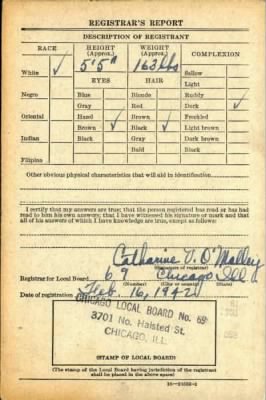 REGISTRAR'S REPORT
DESCRIPTION OF REGISTRANT
RACE HEIGHT (Approx.) WEIGHT (Approx.) COMPLEXION
White ✓ 5'5" 163 lbs Sallow
Light
EYES HAIR
Negro Blue Blonde Ruddy
Gray Red Dark ✓
Oriental Hazel Brown Freckled
Brown ✓ Black ✓ Light brown
Indian Black Gray Dark brown
Bald Black
Filipino
Other obvious physical characteristics that will aid in identification
I certify that my answers are true; that the person registered has read or has had
read to him his own answers; that I have witnessed his signature or mark and that
all of his answers of which I have knowledge are true, except as follows:
Catharine V. O'Malley
(Signature of registrar)
Registrar for Local Board 69 Chicago Ill
(Number) (City or county) (State)
Date of registration Feb. 16, 1942
CHICAGO LOCAL BOARD No. 69
3701 No. Halsted St.
CHICAGO, ILL.
(STAMP OF LOCAL BOARD)
(The stamp of the Local Board having jurisdiction of the registrant
shall be placed in the above space)